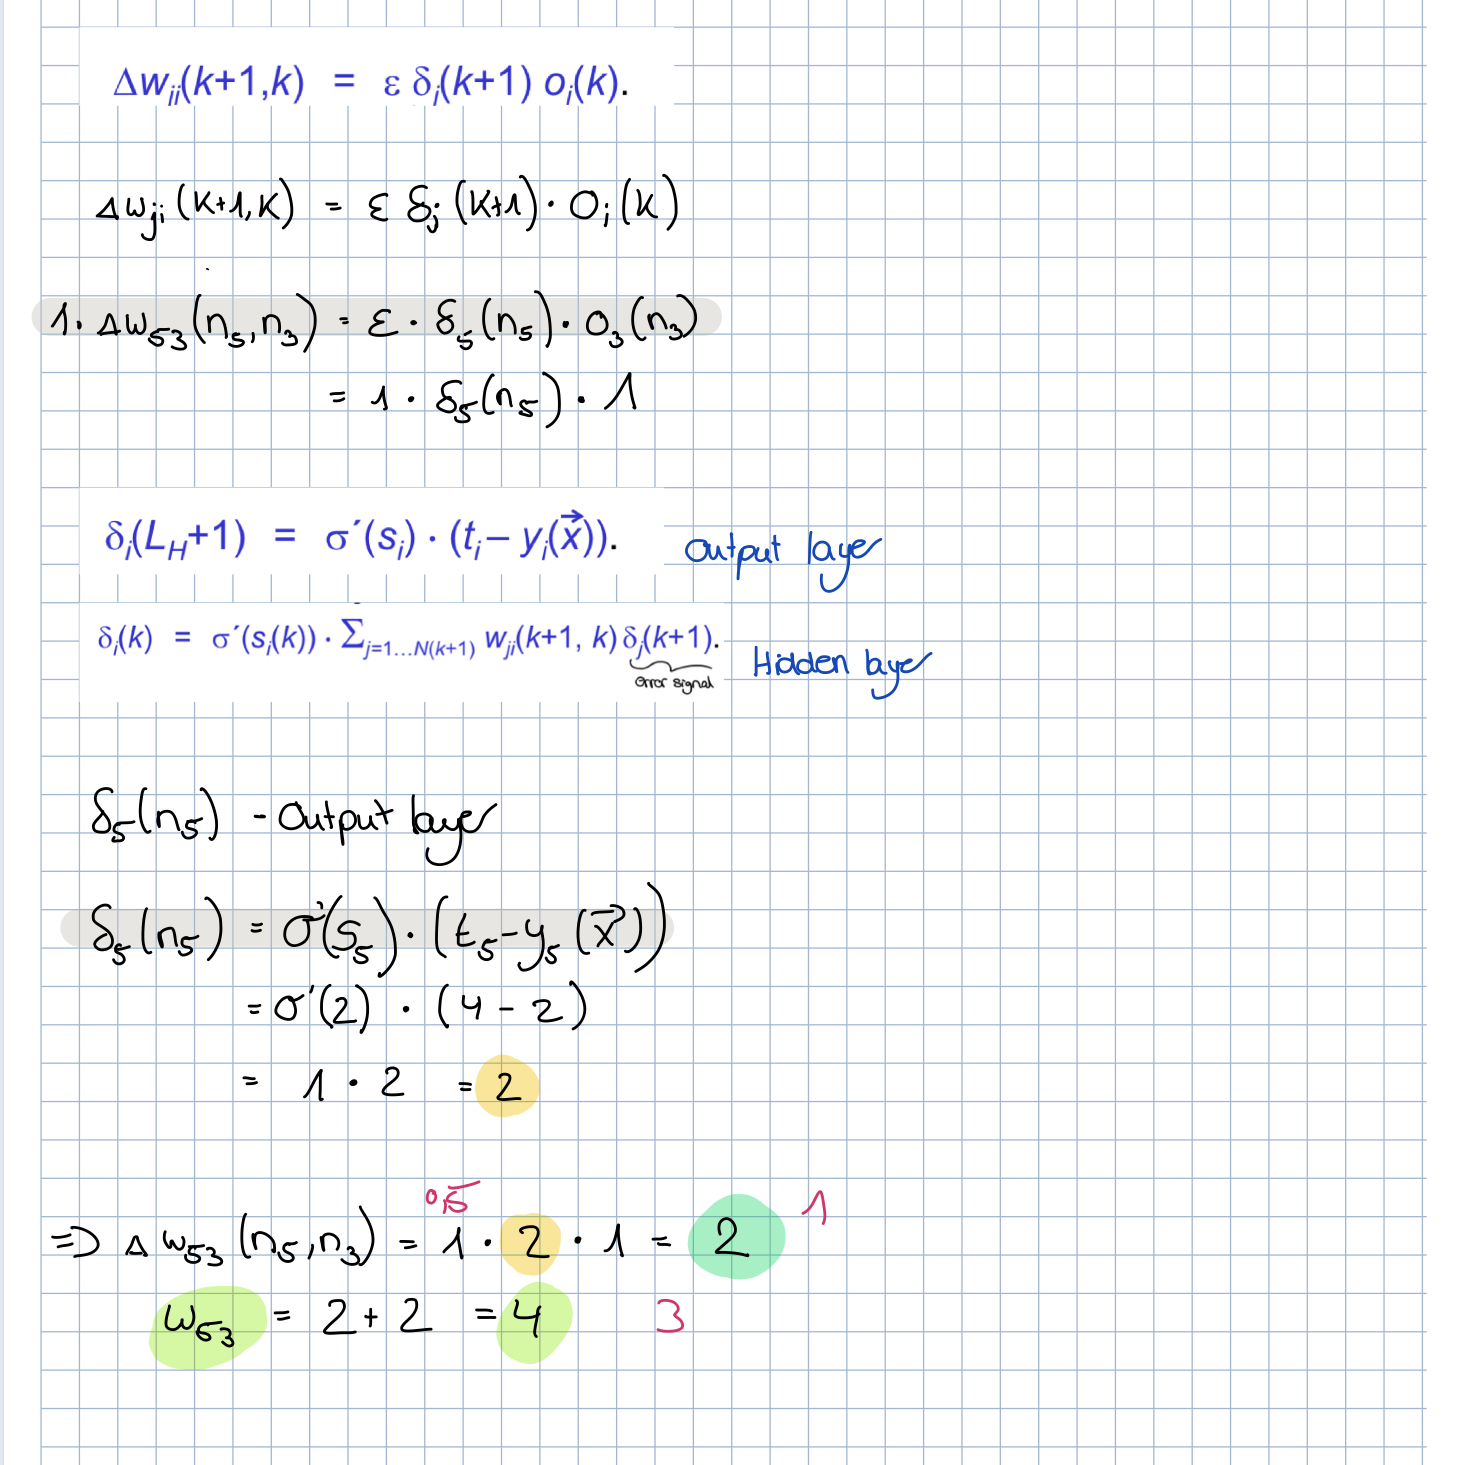 Δw_ji(k+1,k) = ε δ_j(k+1) o_i(k).
Δw_ji (k+1,k) = ε δ_j (k+1) · o_i (k)
1. Δw_53 (n_5, n_3) = ε · δ_5 (n_5) · o_3 (n_3)
= 1 · δ_5 (n_5) · 1
δ_i(L_H+1) = σ´(s_i) · (t_i – y_i(x⃗)). Output layer
δ_i(k) = σ´(s_i(k)) · Σ_j=1...N(k+1) w_ji(k+1, k) δ_j(k+1). Hidden layer
error signal
δ_5 (n_5) - Output layer
δ_5 (n_5) = σ'(s_5) · (t_5 - y_5 (x⃗))
= σ'(2) · (4 - 2)
= 1 · 2 = 2
0,5 1
=> Δ w_53 (n_5, n_3) = 1 · 2 · 1 = 2
w_53 = 2 + 2 = 4 3